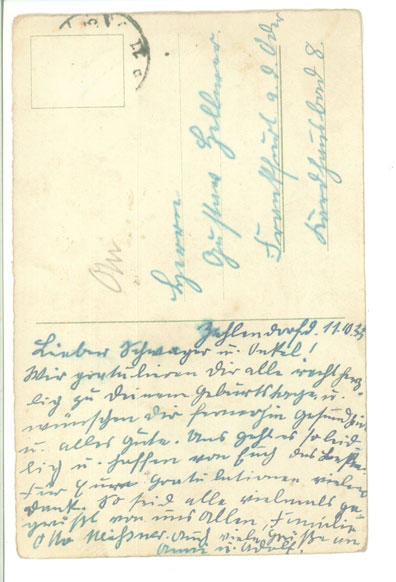 Herrn
Gustav Hellmer
Frankfurt a. d. Oder
8.
Zehlendorf d. 11.10.35
Lieber Schwager u. Onkel!
Wir gratulieren Dir alle recht herz-
lich zu Deinem Geburtstage u.
wünschen Dir fernerhin Gesundheit
u. alles Gute. Uns geht es so leid-
lich u. hoffen von Euch das Beste.
Für Eure Gratulationen vielen
Dank. So seid alle vielmals ge-
grüßt von uns Allen, Familie
Otto Meißner. Auch viele Grüße an
Anna u. Adolf.